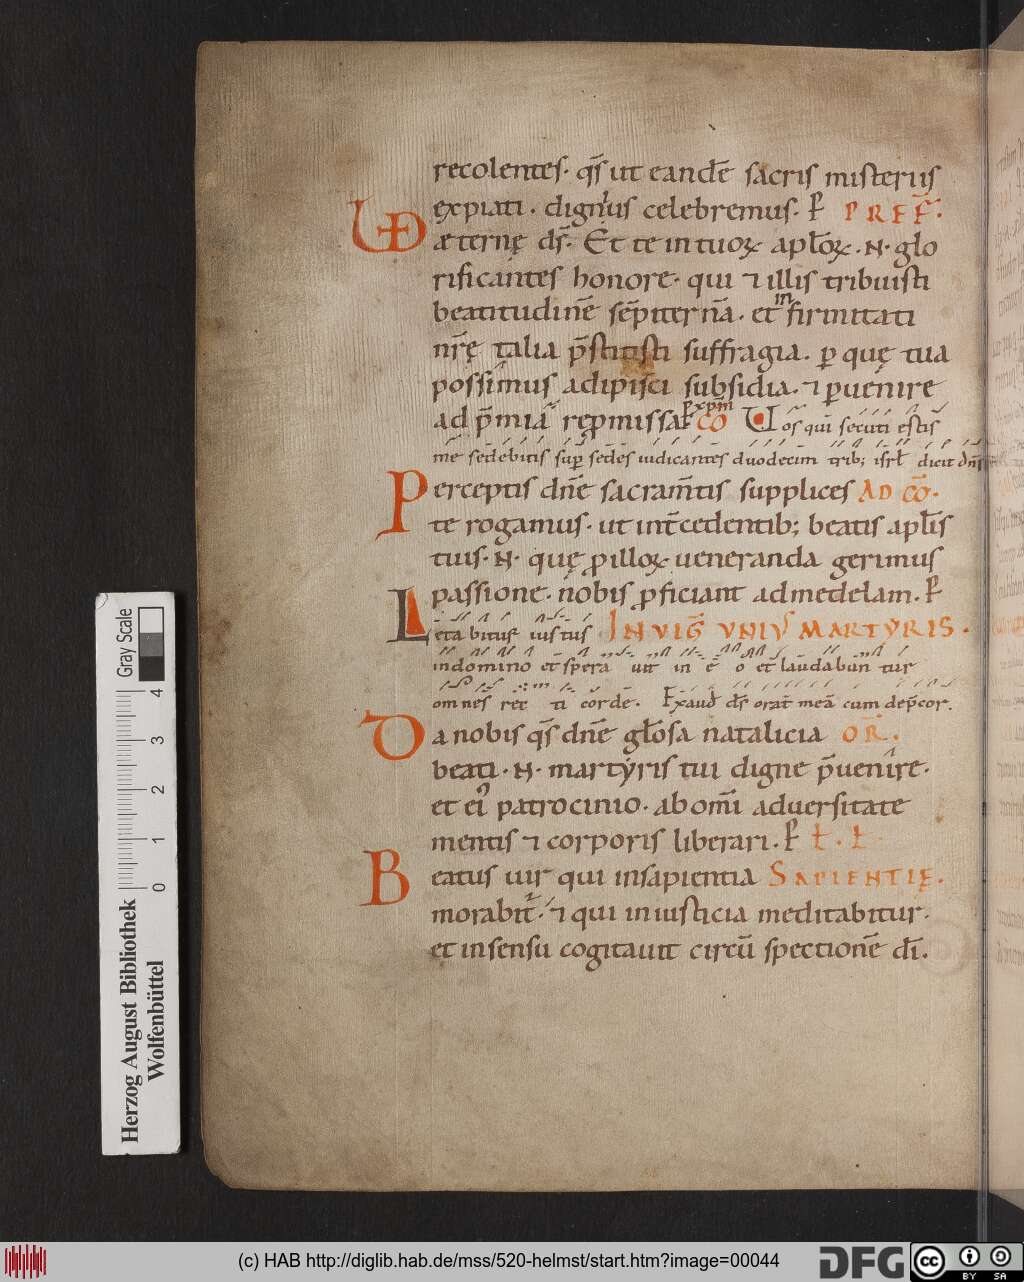 recolentes· q̄s ut eandē sacris misteriis
expiati· dignius celebremus· P̄ PREF̄·
VD æternę ds̄· Et te in tuoꝝ apl̄oꝝ· N· glo
rificantes honore· qui ⁊ illis tribuisti
beatitudinē sēpiternā· et infirmitati
nr̄ę talia p̄stitisti suffragia· ꝑ quę tua
possimus adipisci subsidia· ⁊ ꝑuenire
ad p̄mia reꝓmissa P̄ xp̄m CŌ Vos qui secuti estis
me sedebitis suꝑ sedes iudicantes duodecim trib; isrl̄ dicit dn̄s
Perceptis dn̄e sacram̄tis supplices AD CŌ·
te rogamus· ut int̄cedentib; beatis apl̄is
tuis· N· quę ꝓ illoꝝ ueneranda gerimus
passione· nobis ꝓficiant ad medelam· P̄
Letabitur iustus IN VIḠ VNIVS MARTYRIS·
in domino et spera uit in e o et laudabun tur
omnes rec ti corde· Exaud ds̄ orat̄ meā cum dep̄cor.
Da nobis q̄s dn̄e gl̄osa natalicia OR̄·
beati· N· martyris tui digne p̄uenire·
et ei᷒ patrocinio· ab om̄i aduersitate
mentis ⁊ corporis liberari· P̄ Ł· L
Beatus uir qui in sapientia SAPIENTIĘ·
morabit᷑· ⁊ qui in iusticia meditabitur·
et in sensu cogitauit circū spectionē dī·
Gray Scale
4
3
2
1
0
Herzog August Bibliothek
Wolfenbüttel
(c) HAB http://diglib.hab.de/mss/520-helmst/start.htm?image=00044
DFG
cc BY SA